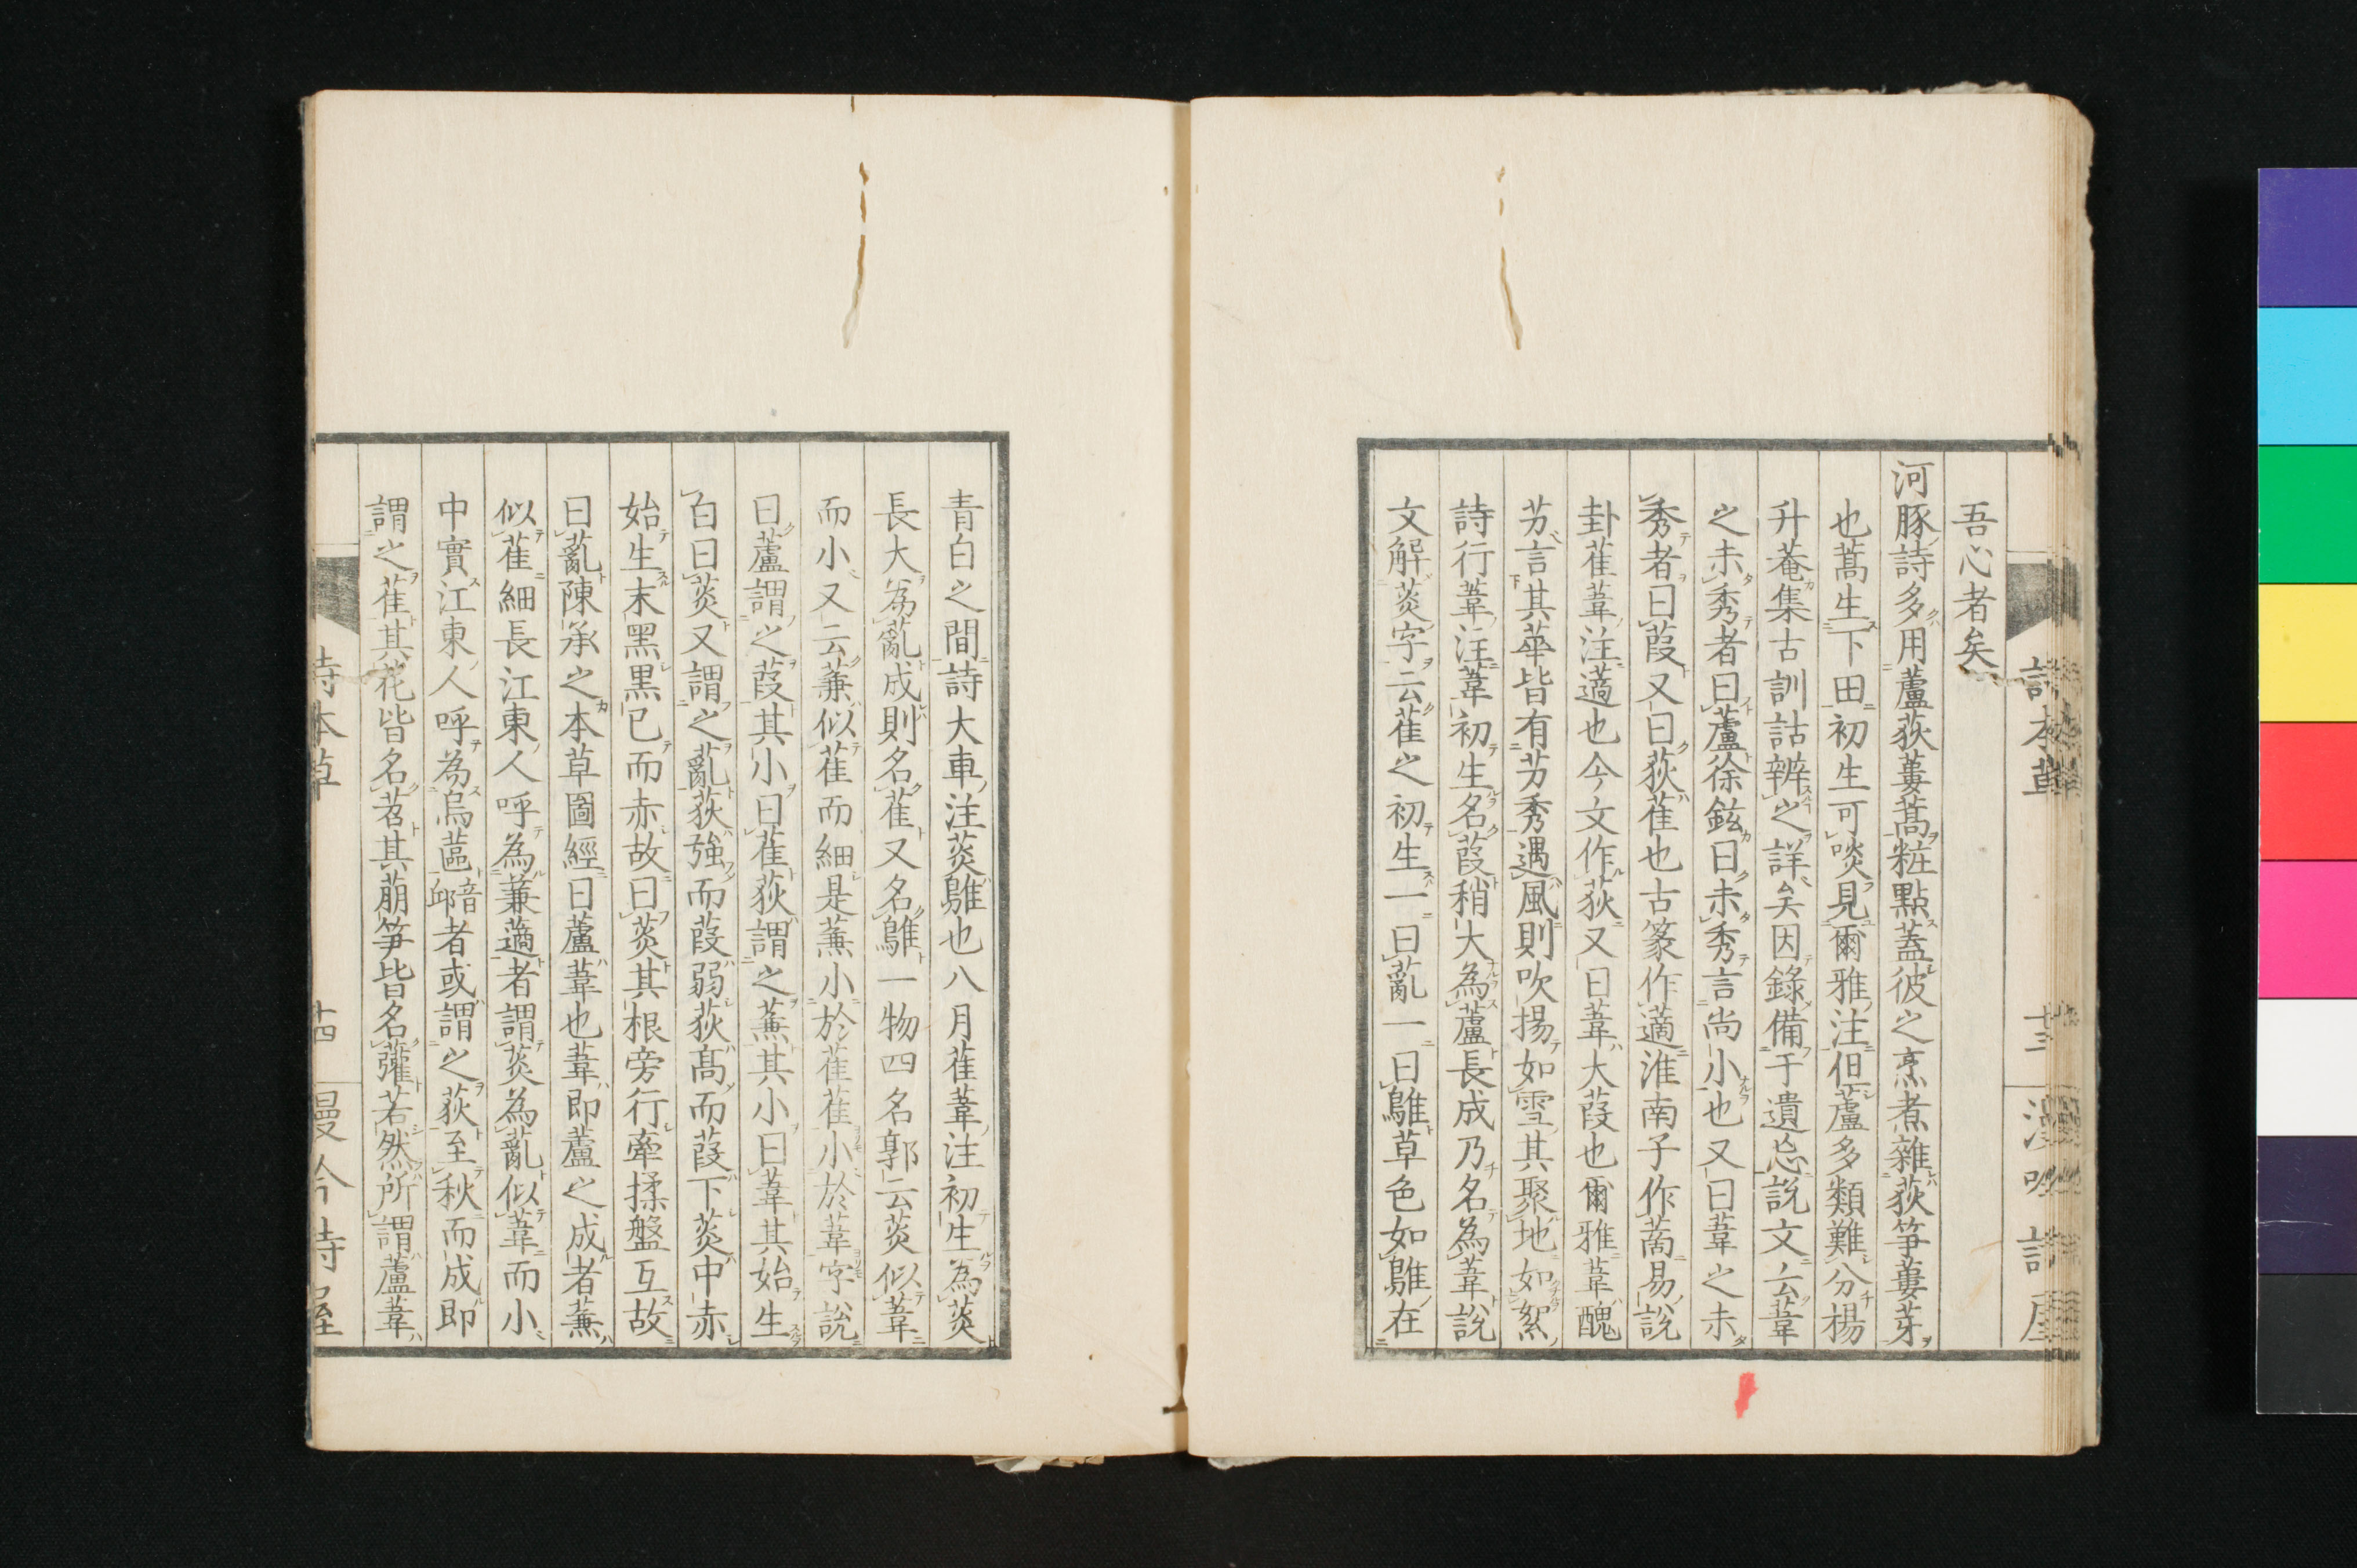 吾心者矣
河豚詩多用蘆荻蔞蒿粧點蓋彼之烹煮雜荻笋蔞芽
也蒿生下田初生可啖見爾雅注但蘆多類難分楊
升菴集古訓詁辨之詳矣因錄備于遺忘說文云葦
之未秀者曰蘆徐鉉曰未秀言尚小也又曰葦之未
秀者曰葭又曰荻萑也古篆作藡淮南子作䔥易說
卦萑葦注藡也今文作荻又曰葦大葭也爾雅葦醜
芀言其華皆有芀秀遇風則吹揚如雪其聚地如絮
詩行葦注葦初生名葭稍大為蘆長成乃名為葦說
文解菼字云萑之初生一曰薍一曰鵻草色如鵻在
青白之間詩大車注菼鵻也八月萑葦注初生為菼
長大為薍成則名萑又名鵻一物四名郭云菼似葦
而小又云蒹似萑而細是蒹小於萑萑小於葦字說
曰蘆謂之葭其小曰萑荻謂之蒹其小曰葦其始生
曰菼又謂之薍荻強而葭弱荻高而葭下菼中赤
始生末黑黑已而赤故曰菼其根旁行牽揉盤互故
曰薍陳承之本草圖經曰蘆葦也葦即蘆之成者蒹
似萑細長江東人呼為蒹藡者謂菼為薍似葦而小
中實江東人呼為烏蓲音邱者或謂之荻至秋而成即
謂之萑其花皆名苕其萠笋皆名虇若然所謂蘆葦
詩本草
十四